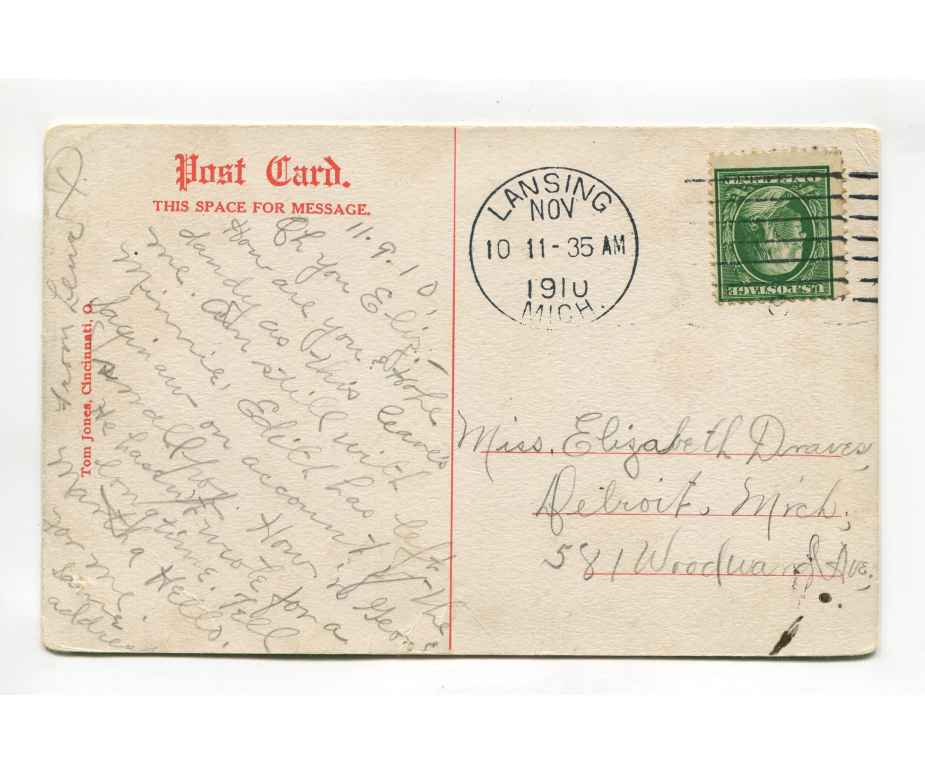 Post Card.
THIS SPACE FOR MESSAGE.
11.9.10
Oh you Eliz.
How are you? Hope
dandy as this leaves
me. Am still with
Minnie, Edith has left the
Sagin aw on account of
small pox. How is Geo.
He hasn't wrote for a
long time. Tell
Martha Hello,
for me.
Same
address
From Lena D.
Tom Jones, Cincinnati, O.
LANSING
NOV
10 11-35 AM
1910
MICH.
U.S.POSTAGE
Miss. Elizabeth Draves,
Detroit, Mich.,
581 Woodward Ave.,